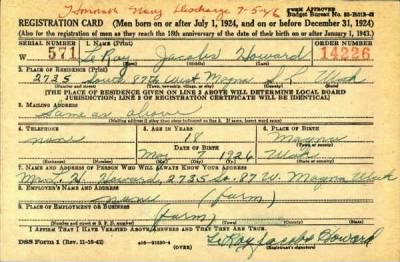 Navy Discharge 7-5-46
FORM APPROVED
Budget Bureau No.
REGISTRATION CARD (Men born on or after July 1, 1924, and on or before December 31, 1924)
(Also for the registration of men as they reach the 18th anniversary of the date of their birth on or after January 1, 1943.)
SERIAL NUMBER 1. NAME (Print) ORDER NUMBER
W 571 LeRoy Jacobs Howard 14226
2. PLACE OF RESIDENCE (Print)
2735 South 87th West Magna S.L. Utah
(Number and street) (Town, township, village, or city) (County) (State)
[THE PLACE OF RESIDENCE GIVEN ON LINE 2 ABOVE WILL DETERMINE LOCAL BOARD
JURISDICTION; LINE 2 OF REGISTRATION CERTIFICATE WILL BE IDENTICAL]
3. MAILING ADDRESS
Same as above
(Mailing address if other than place indicated on line 2. If same, insert word same)
4. TELEPHONE 5. AGE IN YEARS 6. PLACE OF BIRTH
none 18 Magna
DATE OF BIRTH (Town or county)
7 1926 Utah
(Exchange) (Number) (Mo.) (Day) (Yr.) (State or country)
7. NAME AND ADDRESS OF PERSON WHO WILL ALWAYS KNOW YOUR ADDRESS
H. Howard, 2735 So. 87 W. Magna Utah
8. EMPLOYER'S NAME AND ADDRESS
(farm)
9. PLACE OF EMPLOYMENT OR BUSINESS
(farm)
(Number and street or R. F. D. number) (Town) (County) (State)
I AFFIRM THAT I HAVE VERIFIED ABOVE ANSWERS AND THAT THEY ARE TRUE.
DSS Form 1 (Rev. 11-16-42) (OVER) LeRoy Jacobs Howard
(Registrant's signature)